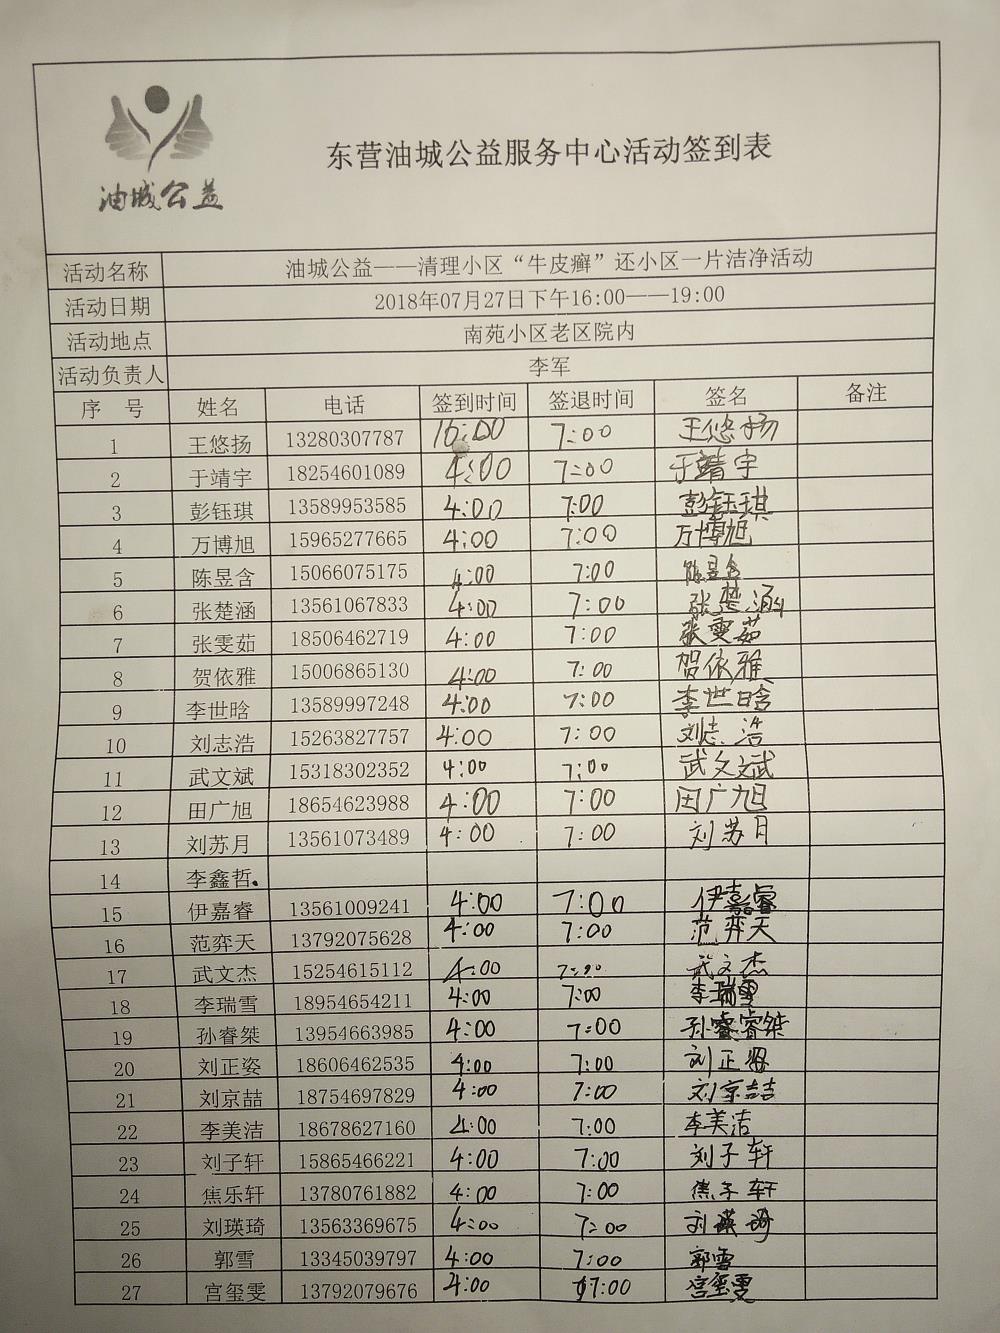 油城公益
东营油城公益服务中心活动签到表
活动名称 油城公益——清理小区“牛皮癣”还小区一片洁净活动
活动日期 2018年07月27日下午16:00——19:00
活动地点 南苑小区老区院内
活动负责人 李军
序 号 姓名 电话 签到时间 签退时间 签名 备注
1 王悠扬 13280307787 16:00 7:00 王悠扬
2 于靖宇 18254601089 4:00 7:00 于靖宇
3 彭钰琪 13589953585 4:00 7:00 彭钰琪
4 万博旭 15965277665 4:00 7:00 万博旭
5 陈昱含 15066075175 4:00 7:00 陈昱含
6 张楚涵 13561067833 4:00 7:00 张楚涵
7 张雯茹 18506462719 4:00 7:00 张雯茹
8 贺依雅 15006865130 4:00 7:00 贺依雅
9 李世晗 13589997248 4:00 7:00 李世晗
10 刘志浩 15263827757 4:00 7:00 刘志浩
11 武文斌 15318302352 4:00 7:00 武文斌
12 田广旭 18654623988 4:00 7:00 田广旭
13 刘苏月 13561073489 4:00 7:00 刘苏月
14 李鑫哲
15 伊嘉睿 13561009241 4:00 7:00 伊嘉睿
16 范弈天 13792075628 4:00 7:00 范弈天
17 武文杰 15254615112 4:00 7:00 武文杰
18 李瑞雪 18954654211 4:00 7:00 李瑞雪
19 孙睿桀 13954663985 4:00 7:00 孙睿桀
20 刘正姿 18606462535 4:00 7:00 刘正姿
21 刘京喆 18754697829 4:00 7:00 刘京喆
22 李美洁 18678627160 4:00 7:00 李美洁
23 刘子轩 15865466221 4:00 7:00 刘子轩
24 焦乐轩 13780761882 4:00 7:00 焦子轩
25 刘瑛琦 13563369675 4:00 7:00 刘瑛琦
26 郭雪 13345039797 4:00 7:00 郭雪
27 宫玺雯 13792079676 4:00 7:00 宫玺雯